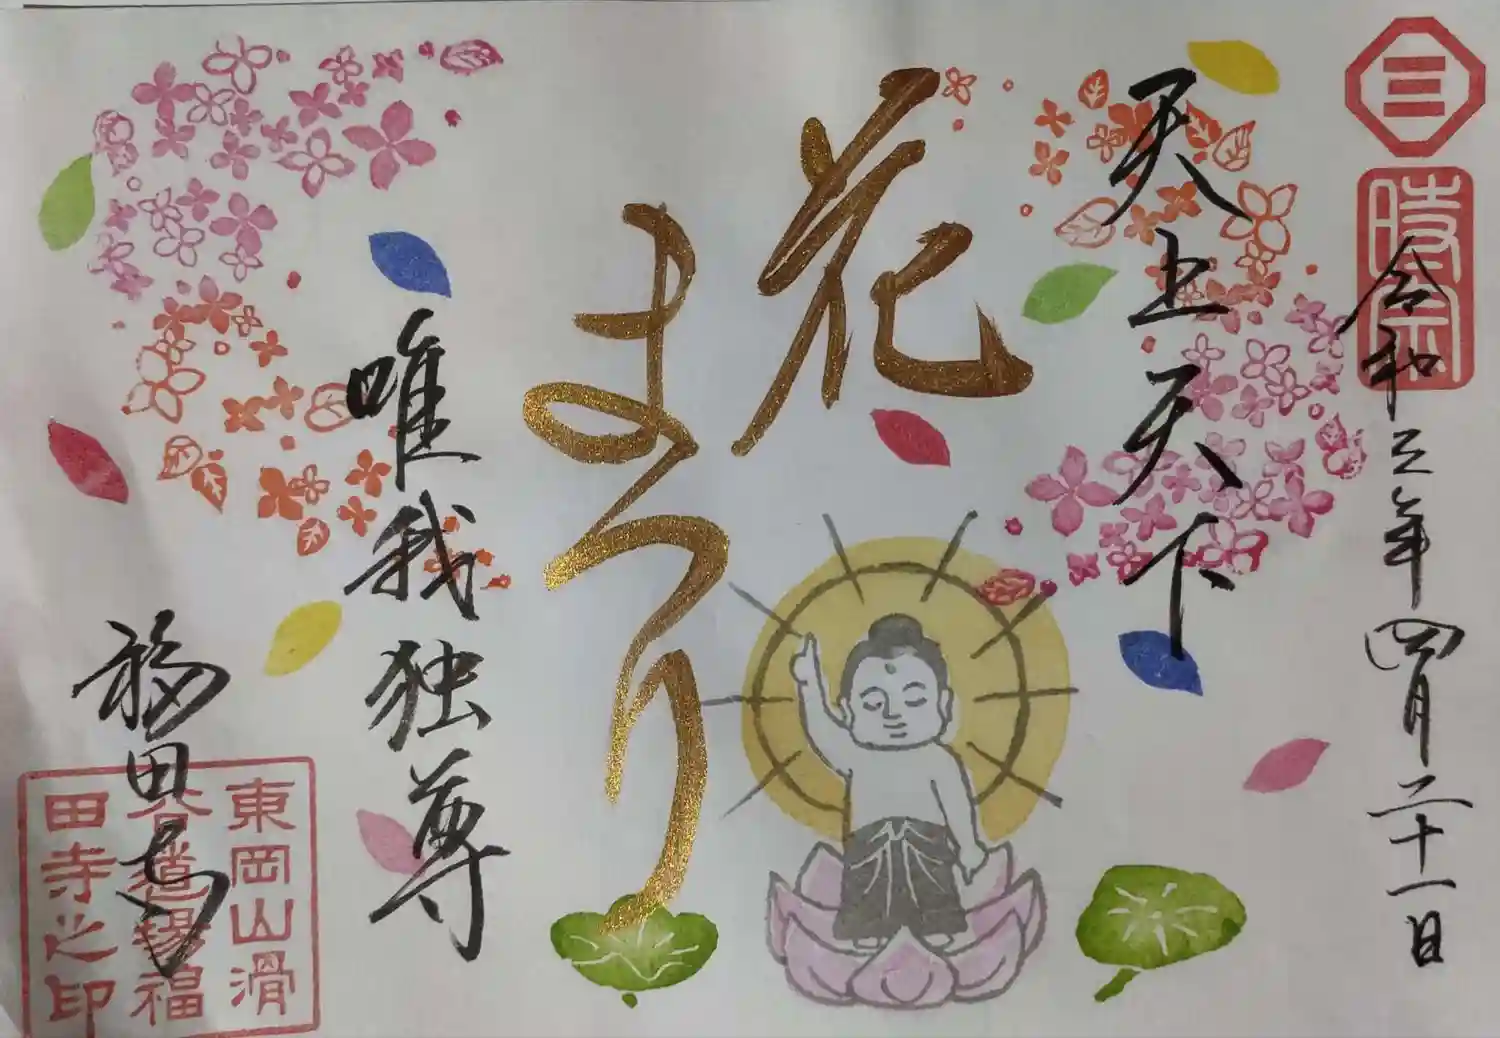 三
時宗
令和三年四月二十一日
天上天下
花
まつり
唯我独尊
福田寺
東岡山滑
谷道場福
田寺之印